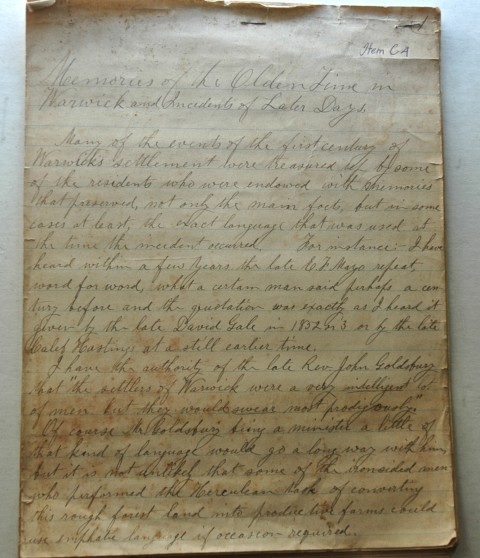 Item C-A
Memories of the Olden Time in
Warwick and Incidents of Later Days.
Many of the events of the first century of
Warwick's settlement were treasured up by some
of the residents who were endowed with memories
that preserved, not only the main facts, but in some
cases at least, the exact language that was used at
the time the incident occurred. For instance:- I have
heard within a few years the late E. F. Mayo repeat,
word for word, what a certain man said perhaps a cen-
tury before and the quotation was exactly as I heard it
given by the late David Gale in 1852 or 3 or by the late
Caleb Hastings at a still earlier time.
I have the authority of the late Rev. John Goldsbury
that "the settlers of Warwick were a very intelligent set
of men but they would swear most prodigiously."
Of course Mr Goldsbury being a minister a little of
that kind of language would go a long way with him,
but it is not unlikely that some of the ironsided men
who performed the Herculean task of converting
this rough forest land into productive farms could
use emphatic language if occasion required.